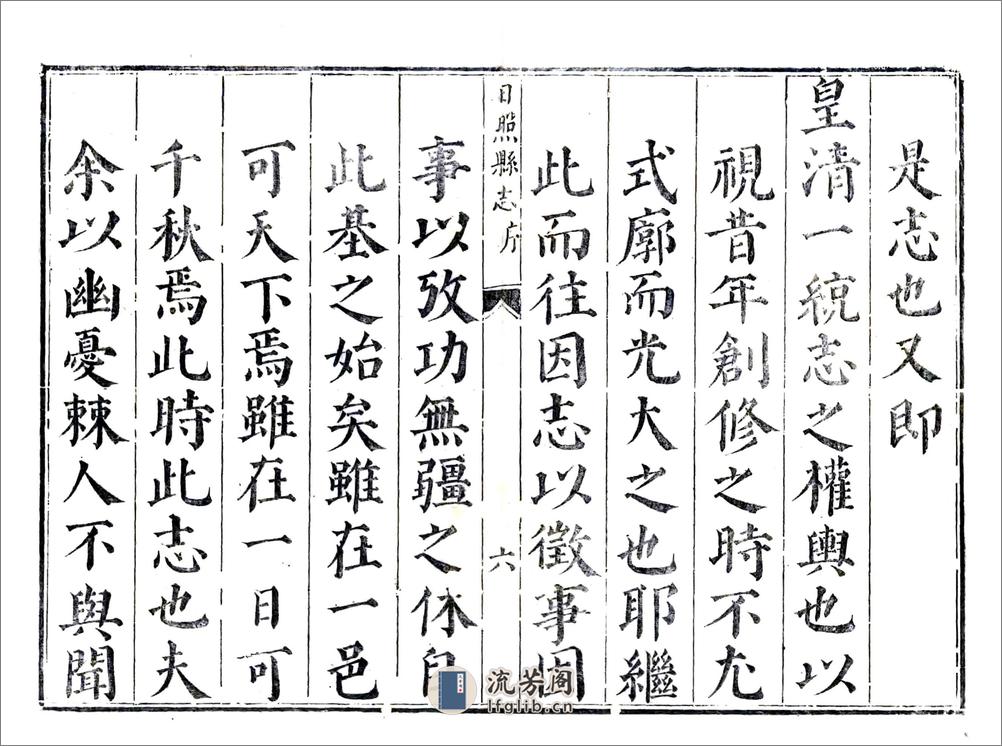 是志也又即
皇清一統志之權輿也以
視昔年創修之時不尤
式廓而光大之也耶繼
此而往因志以徵事因
日照縣志 序
六
事以攷功無疆之休自
此基之始矣雖在一邑
可天下焉雖在一日可
千秋焉此時此志也夫
余以幽憂棘人不與聞
流芳阁
lfglib.cn